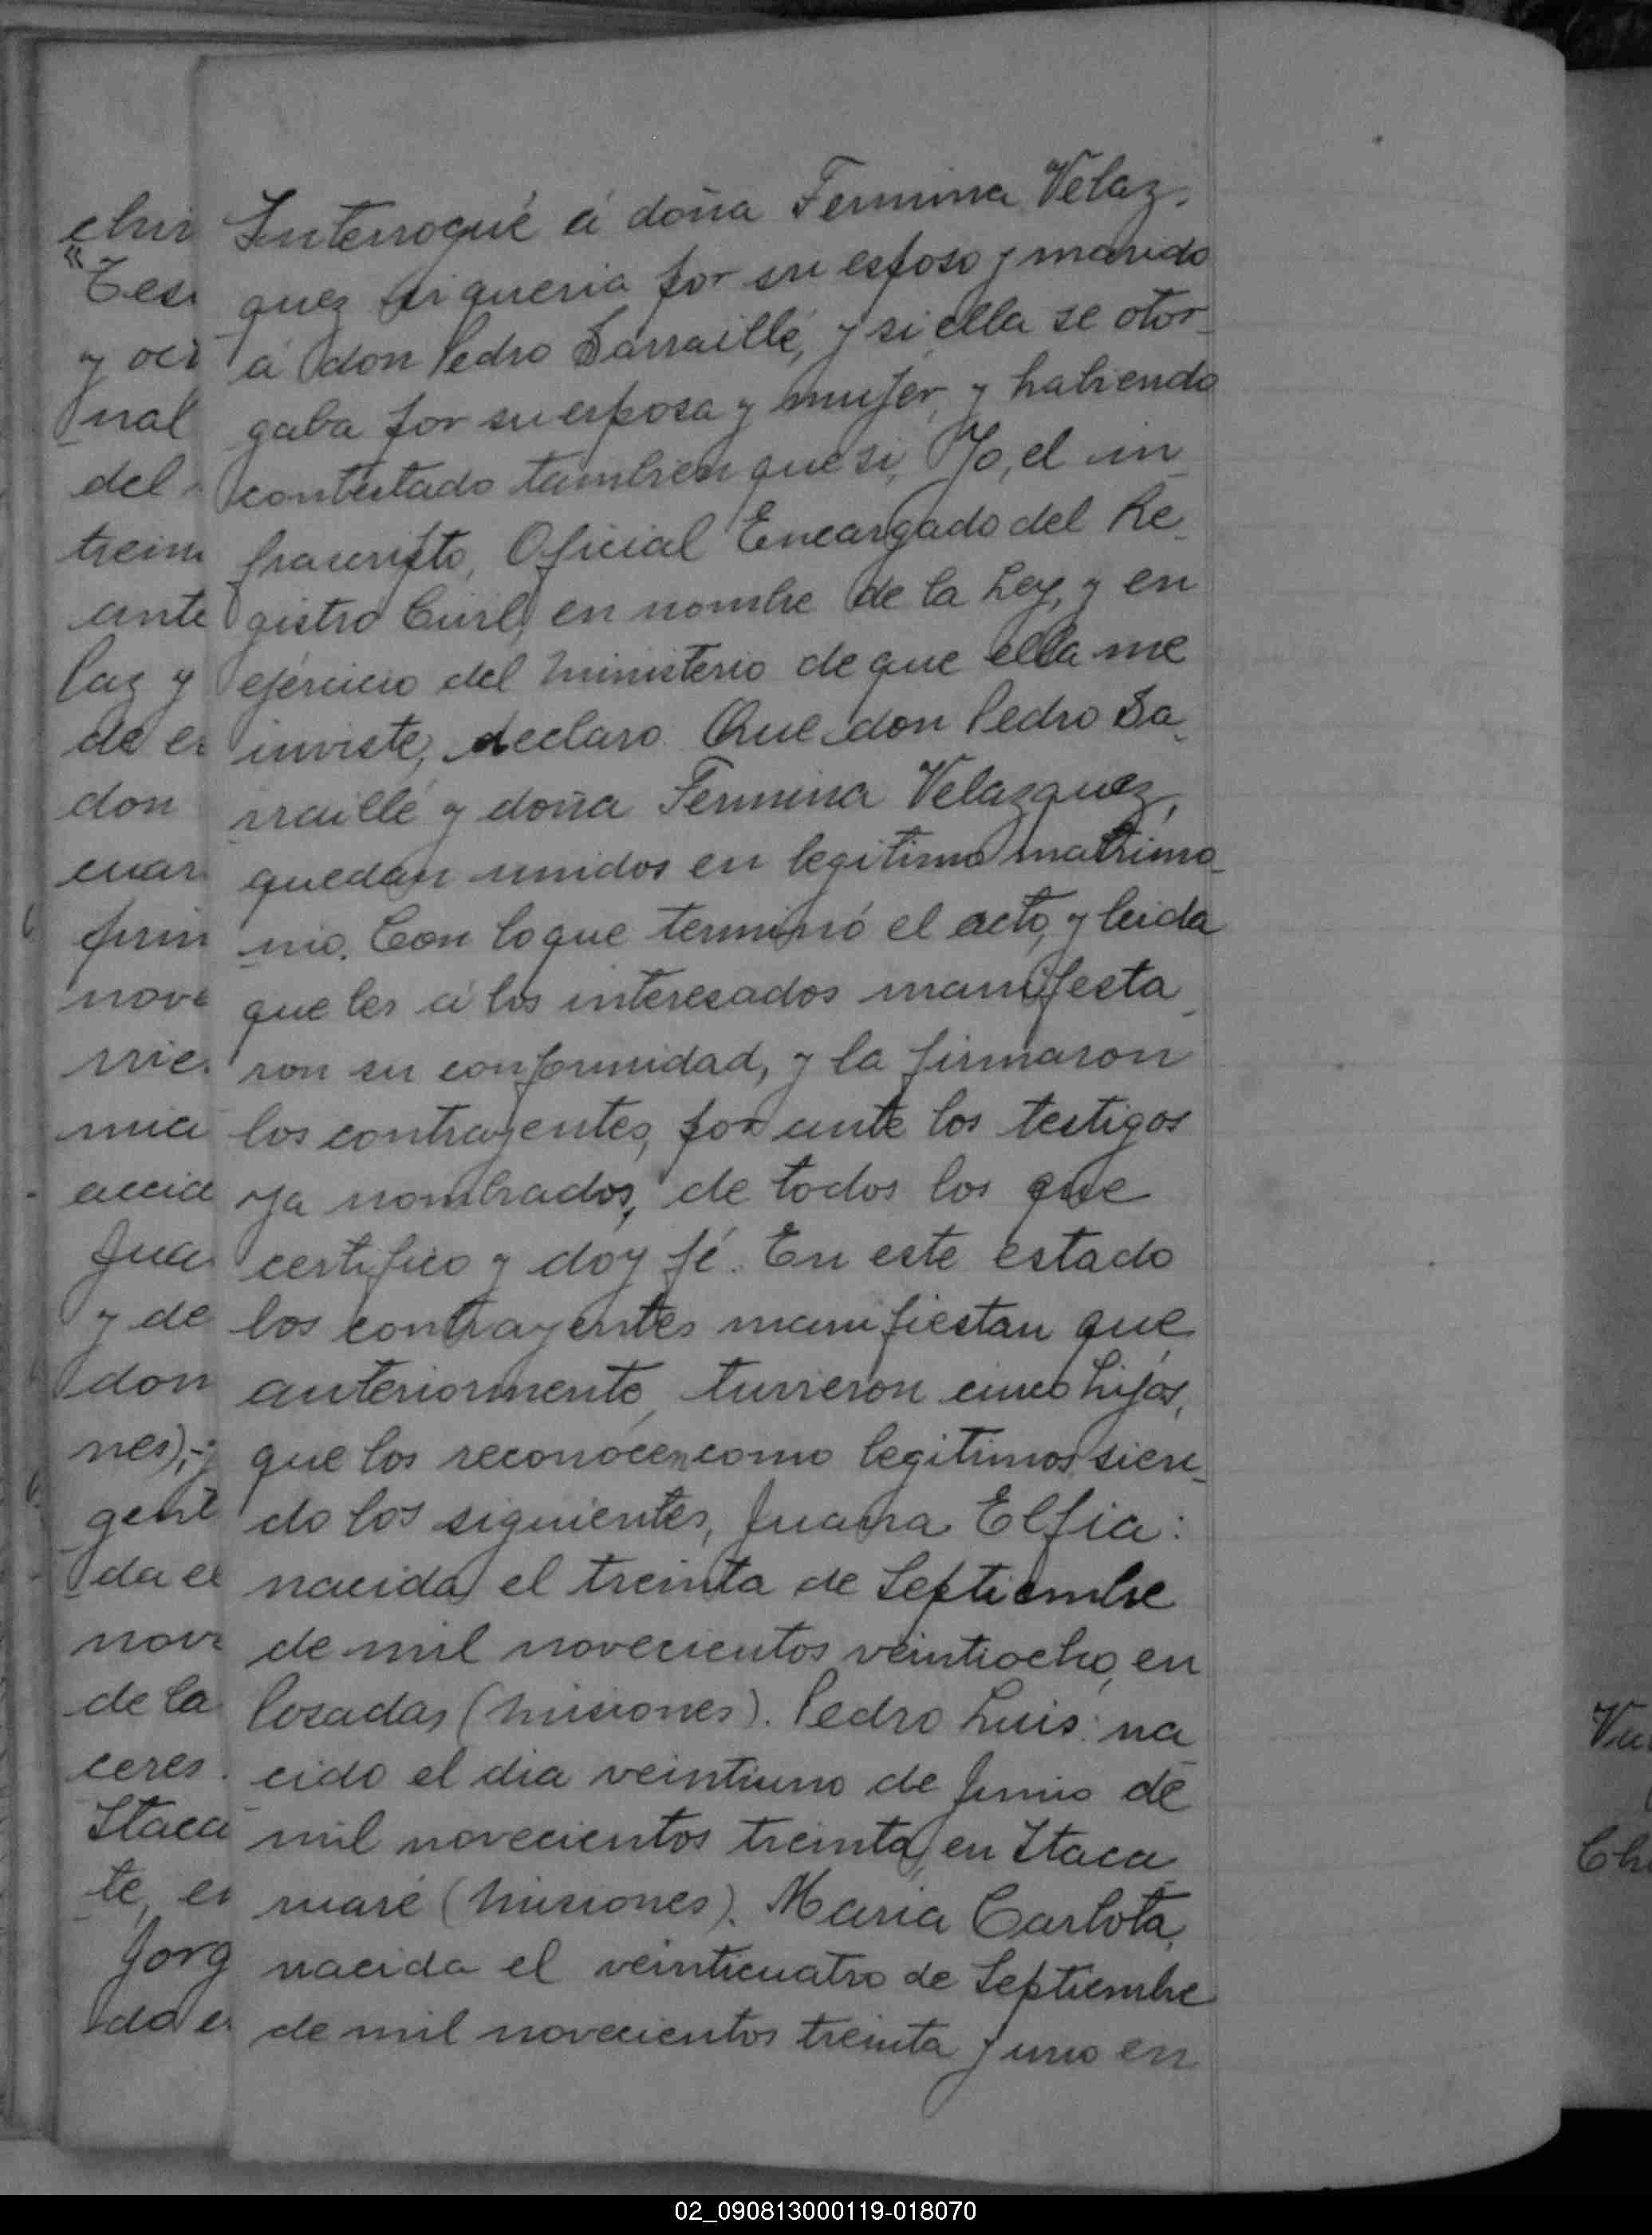 Interrogué á doña Fermina Velaz-
quez si queria por su esposo y marido
á don Pedro Sarraillé, y si ella se otor-
gaba por su esposa y mujer, y habiendo
contestado tambien que si, Yo, el in-
frascripto, Oficial Encargado del Re-
gistro Civil, en nombre de la Ley, y en
ejercicio del ministerio de que ella me
inviste, declaro Que don Pedro Sa-
rraillé y doña Fermina Velazquez,
quedan unidos en legitimo matrimo-
nio. Con lo que terminó el acto, y leida
que les á los interesados manifesta-
ron su conformidad, y la firmaron
los contrayentes, por ante los testigos
ya nombrados, de todos los que
certifico y doy fé. En este estado
los contrayentes manifiestan que
anteriormente, tuvieron cinco hijos,
que los reconocen como legitimos sien-
do los siguientes, Juana Elfia:
nacida el treinta de Septiembre
de mil novecientos veintiocho, en
Posadas (Misiones). Pedro Luis: na-
cido el dia veintiuno de Junio de
mil novecientos treinta, en Itaca-
ruaré (Misiones). Maria Carlota,
nacida el veinticuatro de Septiembre
de mil novecientos treinta y uno en
chir
Tesi
y oc
nal
del
trein
ante
Paz y
de e
don
cuar
prin
nove
rrie
mia
accid
Jua
y de
don
nes), y
gent
da e
nov
de la
ceres.
Itaca
te, e
Jorg
do e
Vu
Ch
02_090813000119-018070